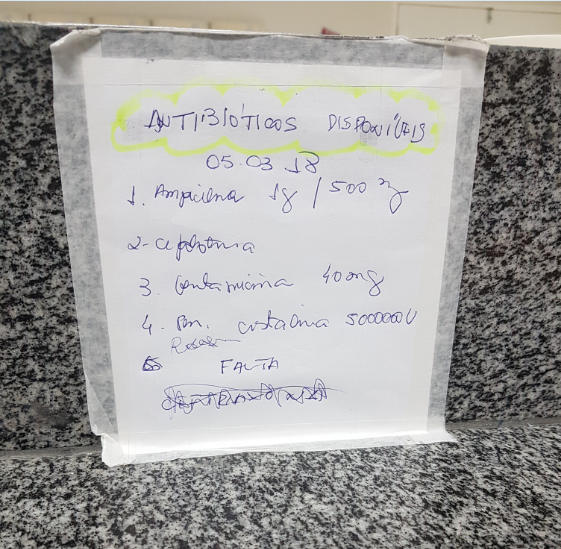 ANTIBIÓTICOS DISPONÍVEIS
05.03.18
1. Ampicilina 1g / 500 mg
2- Cefalotina
3. Gentamicina 40mg
4. Pen. cristalina 5000000U
FALTA